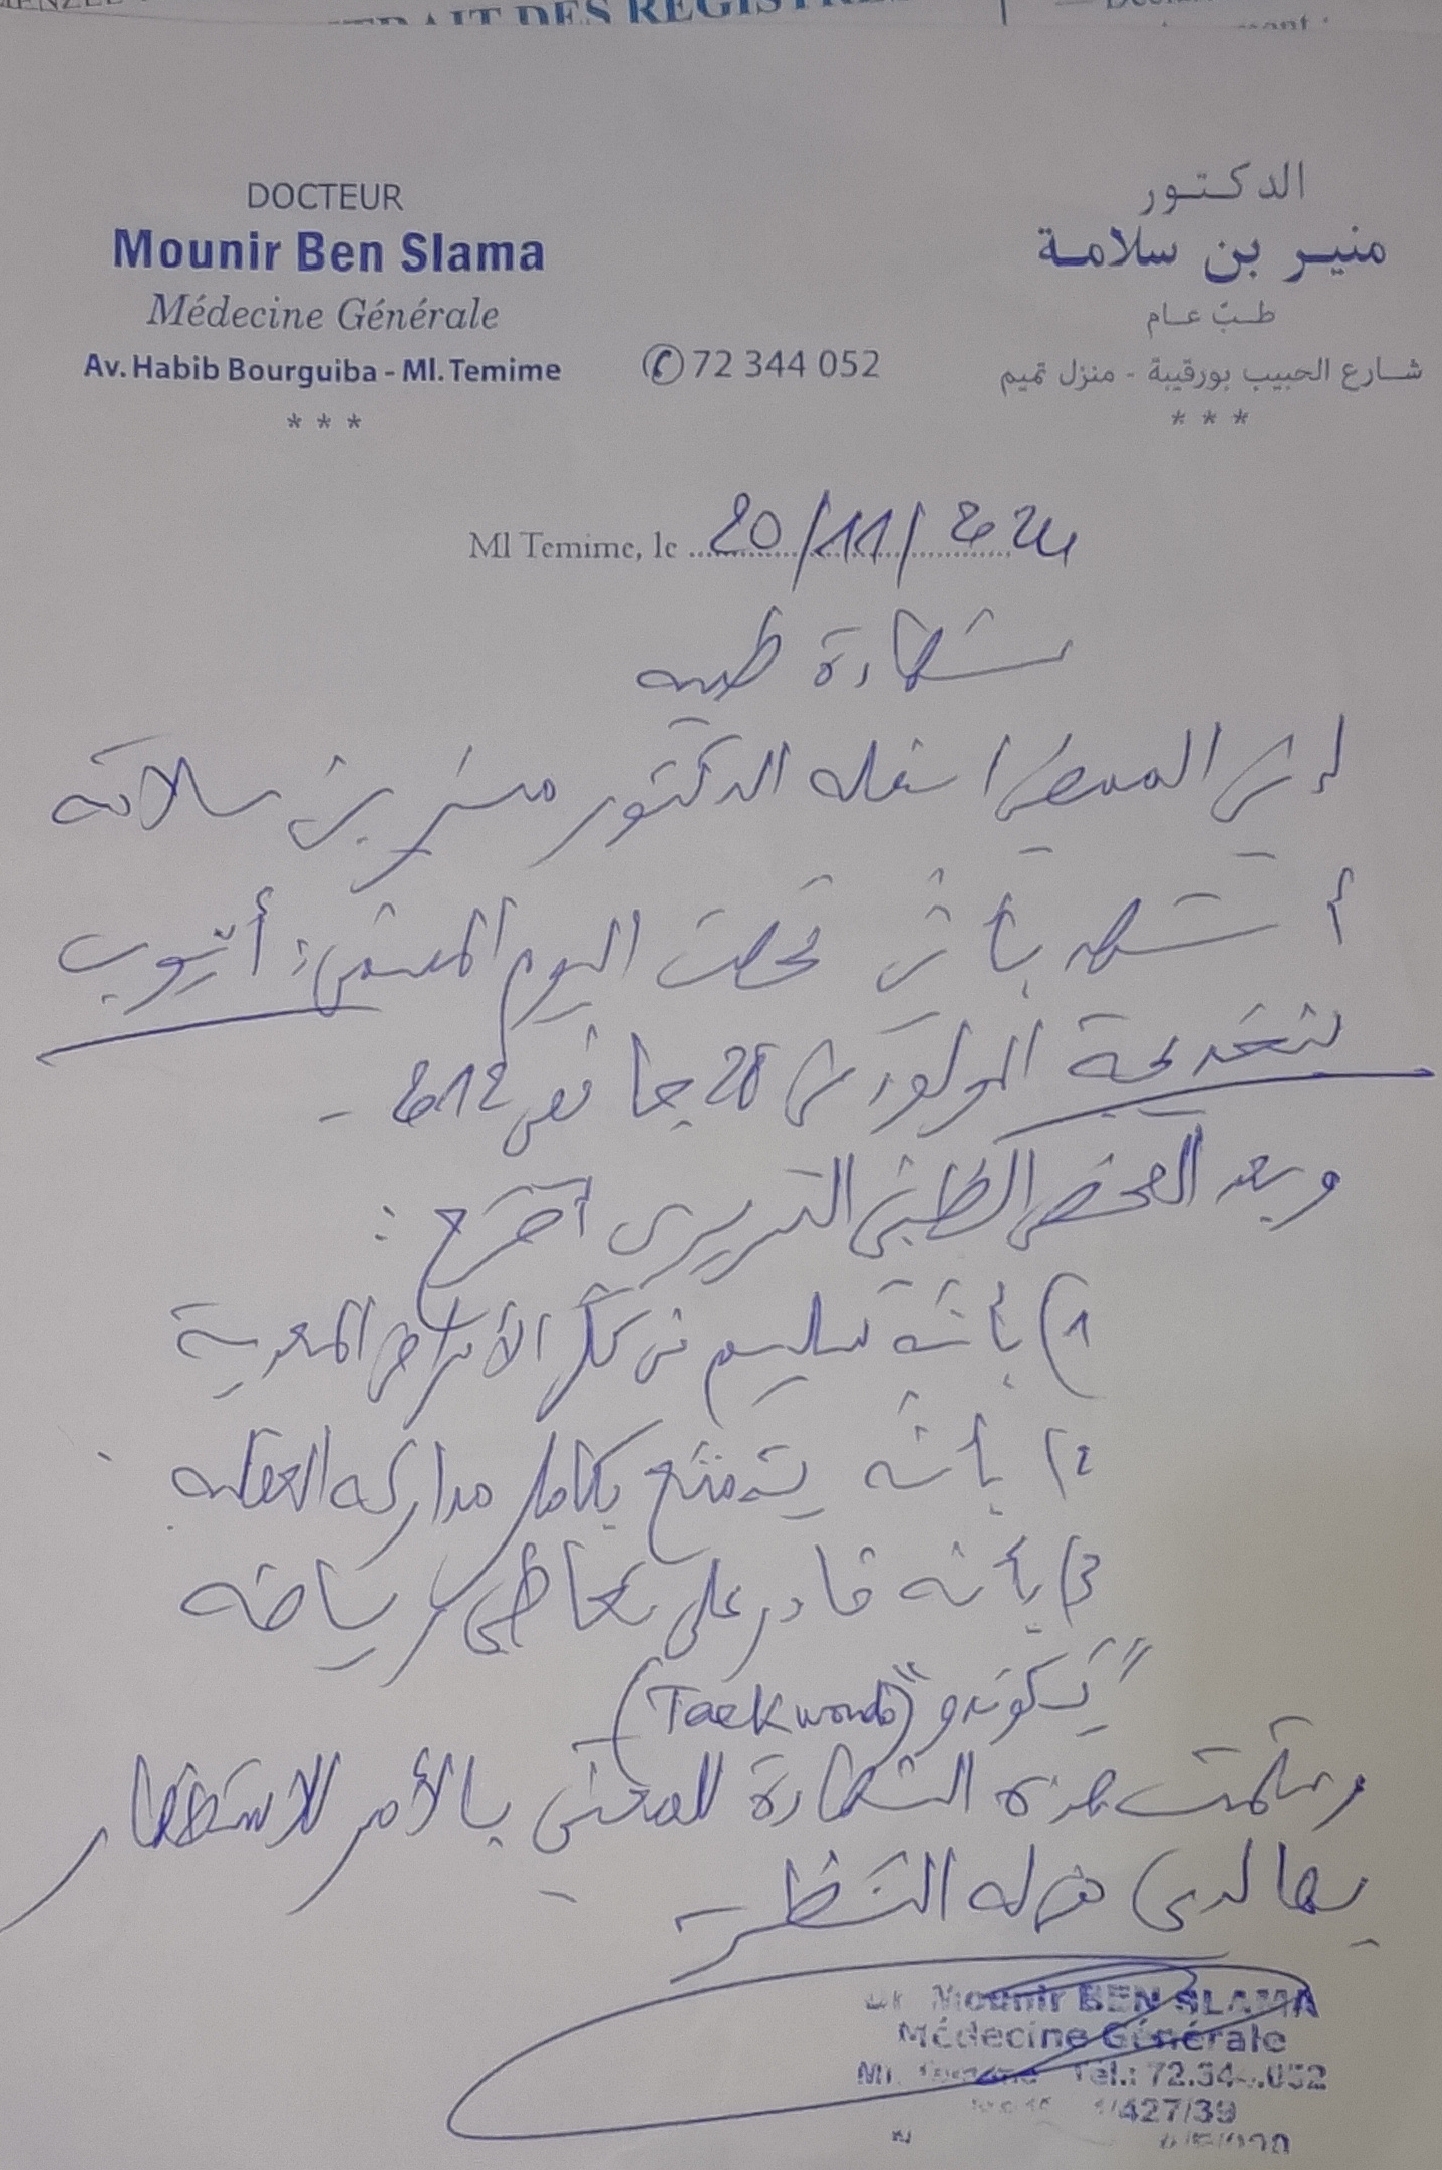 TRAIT DES REGISTRE
DOCTEUR
Mounir Ben Slama
Médecine Générale
Av. Habib Bourguiba - Ml. Temime
* * *
72 344 052
الدكتور
منير بن سلامة
طبّ عام
شارع الحبيب بورقيبة - منزل تميم
* * *
Ml Temime, le 20/11/2024
شهادة طبية
إني الممضي اسفله الدكتور منير بن سلامة
أشهد بأني فحصت اليوم المسمى: أيوب
المولود في 28 جانفي 2012 -
وبعد الفحص الطبي السريري أصرح :
1) بأنه سليم من كل الأمراض المعدية
2) بأنه يتمتع بكامل مداركه العقلية
3) بأنه قادر على تعاطي رياضة
"تيكوندو" (Taekwondo)
وسلمت هذه الشهادة للمعني بالأمر للاستظهار
بها لدى من له النظر
Dr Mounir BEN SLAMA
Médecine Générale
Tél.: 72.34 .052
1/427/39